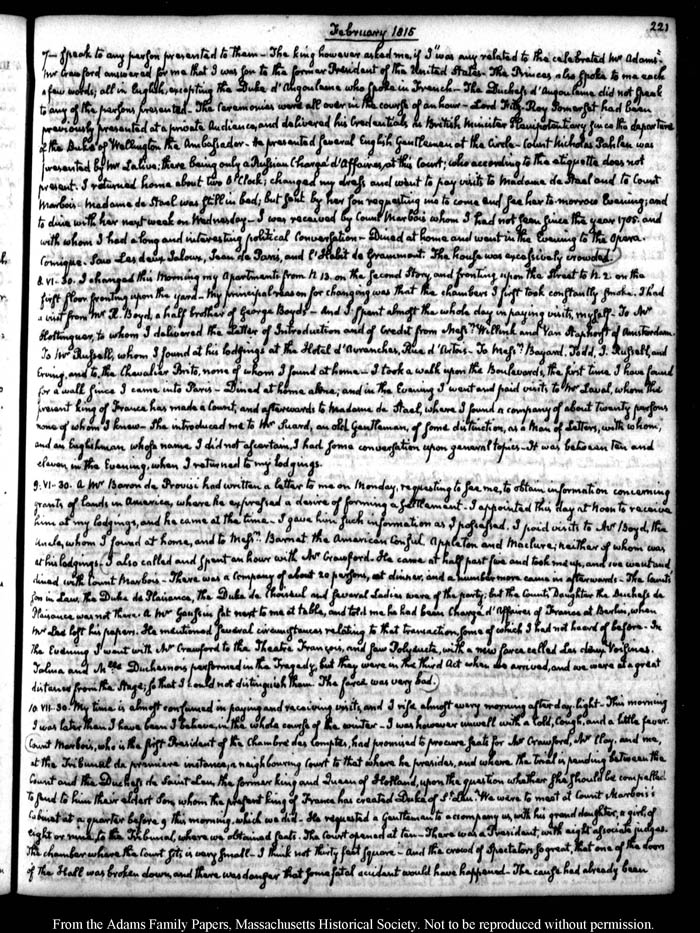 February 1815
221
7— speak to any person presented to them— The king however asked me, if I "was any related to the celebrated Mr Adams".
Mr Crawford answered for me that I was son to the former President of the United States— The Princes, also spoke to me each
a few words; all in English, excepting the Duke d'Angouleme who spoke in French— The Duchess d'Angouleme did not speak
to any of the persons, presented— The Ceremonies were all over in the course of an hour— Lord Fitz-Roy Somerset had been
previously presented at a private Audience, and delivered his Credentials as British Minister Plenipotentiary since the departure
of the Duke of Wellington the Ambassador— He presented several English Gentlemen at the Circle— Count Nicholas Pahlen was
presented by Mr Labine; there being only a Russian Chargé d'Affaires, at this Court; who according to the etiquette does not
present. I returned home about two O'Clock; changed my dress and went to pay visits to Madame de Stael and to Count
Marbois— Madame de Stael was still in bed; but sent by her son requesting me to come and see her to-morrow Evening; and
to dine with her next week on Wednesday— I was received by Count Marbois whom I had not seen since the year 1785. and
with whom I had a long and interesting political Conversation— Dined at home and went in the evening to the Opera
Comique. Saw Les deux Jaloux, Jean de Paris, and l'Habit de Grammont. The house was excessively crowded.
8. VI-30. I changed this Morning my Apartments from N 13. on the Second Story, and fronting upon the Street to N 2. on the
first floor fronting upon the yard— My principal reason for changing was that the chambers I first took constantly smoke. I had
a visit from Mr R. Boyd, a half brother of George Boyd's— And I spent almost the whole day in paying visits, myself— To Mr
Hottinguer, to whom I delivered the Letter of Introduction and of Credit from Messrs Willink and Van Staphorst of Amsterdam
To Mr Russell, whom I found at his lodgings at the Hotel d'Avranches, Rue d'Artois— To Messrs Bayard, Todd, J. Russell, and
Erving, and to, the Chevalier Brito, none of whom I found at home— I took a walk upon the Boulevards, the first time I have found
for a walk since I came into Paris— Dined at home alone; and in the Evening I went and paid visits to Mr Laval, whom the
present king of France has made a Count, and afterwards to Madame de Stael, where I found a company of about twenty persons
none of whom I knew— She introduced me to Mr Suard, an old Gentleman, of some distinction, as a Man of Letters, with whom,
and an Englishman whose name I did not ascertain, I had some conversation upon general topics— It was between ten and
eleven, in the Evening, when I returned to my lodgings.
9. VI-30. A Mr Baron de had written a letter to me on Monday, requesting to see me, to obtain information concerning
grants of lands in America, where he expressed a desire of forming a Settlement— I appointed this day at Noon to receive
him at my lodgings, and he came at the time— I gave him such information as I possessed. I paid visits to Mr Boyd, the
Uncle, whom I found at home, and to Messrs Barnet the American Consul, Appleton and Maclure; neither of whom was
at his lodgings— I also called and spent an hour with Mr Crawford. He came at half past five and took me up, and we went and
dined with Count Marbois— There was a Company of about 20 persons, at dinner, and a number more came in afterwards— The Count's
Son in Law, the Duke de Plaisance, the Duke de Choiseul and several Ladies were of the party; but the Count's Daughter the Duchess de
Plaisance was not there. A Mr Gaussin sat next to me at table, and told me he had been Chargé d'Affaires of France at Berlin, when
Mr Lee lost his papers. He mentioned several circumstances relating to that transaction, some of which I had not heard of before— In
the Evening I went with Mr Crawford to the Theatre François, and saw Polyeucte, with a new farce called Les deux Voisines.
Talma and Mlle Duchesnois performed in the Tragedy, but they were in the third Act when we arrived, and we were at so great
distance from the Stage, that I could not distinguish them. The farce was very bad.
10. VII-30. My time is almost consumed in paying and receiving visits, and I rise almost every morning after day-light— This morning
I was later than I have been I believe, in the whole course of the winter— I was however unwell with a Cold, Cough, and a little fever.
Count Marbois, who is the first President of the Chambre des Comptes, had promised to procure seats for Mr Crawford, Mr Clay, and me,
at the Tribunal de première instance, a neighbouring Court to that where he presides, and where the trial is pending between the
Count and the Duchess de Saint-Leu, the former king and Queen of Holland, upon the question whether she should be compelled
to send to him their eldest Son, whom the present king of France has created Duke of St Leu. We were to meet at Count Marbois's
Cabinet at a quarter before 9 this morning, which we did— He requested a Gentleman to accompany us, with his grand daughter, a girl of
eight or nine, to the Tribunal, where we obtained seats. The Court opened at ten— There was a President, with eight associate judges.
The chamber where the Court sits is very small— I think not thirty feet square— And the crowd of Spectators so great, that one of the doors
of the Hall was broken down, and there was danger that some fatal accident would have happened— The cause had already been
From the Adams Family Papers, Massachusetts Historical Society. Not to be reproduced without permission.